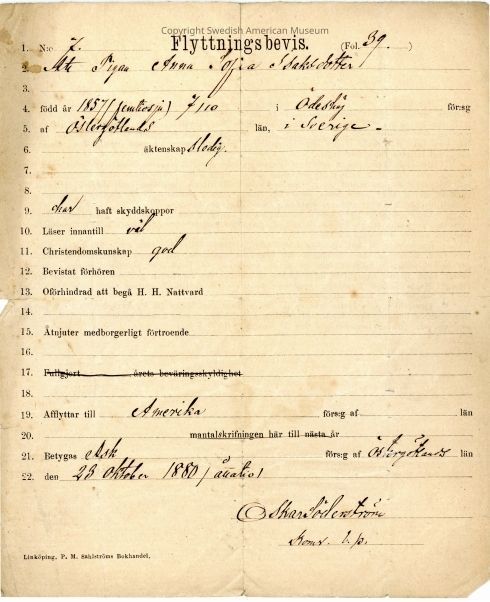 Copyright Swedish American Museum
1. N:o 7. Flyttningsbevis. (Fol. 39.)
2. Att Pigan Anna Sofia Isaksdotter
3.
4. född år 1857 (femtiosju) 7/10 i Ödeshög förs:g
5. af Östergötlands län, i Sverige.
6. äktenskap ledig.
7.
8.
9. har haft skyddskoppor
10. Läser innantill väl
11. Christendomskunskap god
12. Bevistat förhören
13. Oförhindrad att begå H. H. Nattvard
14.
15. Åtnjuter medborgerligt förtroende
16.
17. Fullgjort årets beväringsskyldighet
18.
19. Afflyttar till Amerika förs:g af län
20. mantalskrifningen här till nästa år
21. Betygas Ask förs:g af Östergötlands län
22. den 23 Oktober 1880 (åttatio)
Oskar Söderström
Kom. v. p.
Linköping, P. M. Sahlströms Bokhandel.